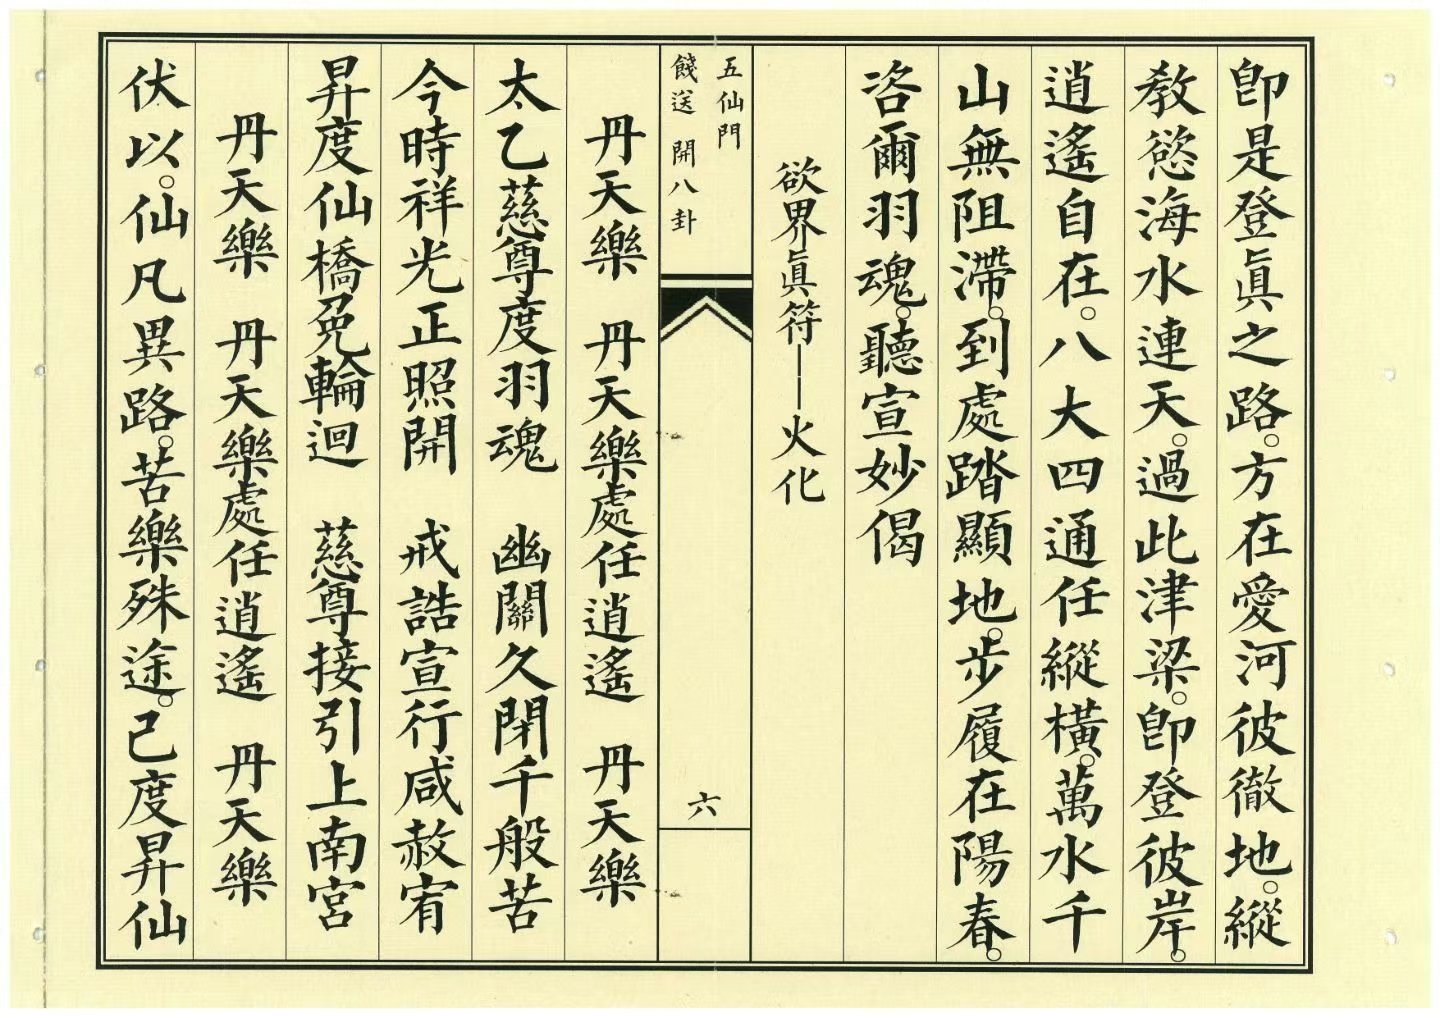 卽是登眞之路。方在愛河彼徹地。縱
教慾海水連天。過此津梁。卽登彼岸。
逍遙自在。八大四通任縱橫。萬水千
山無阻滯。到處踏顯地。步履在陽春。
咨爾羽魂。聽宣妙偈
欲界眞符——火化
五仙門
餞送 開八卦
六
丹天樂 丹天樂處任逍遙 丹天樂
太乙慈尊度羽魂 幽關久閉千般苦
今時祥光正照開 戒誥宣行咸赦宥
昇度仙橋免輪迴 慈尊接引上南宮
丹天樂 丹天樂處任逍遙 丹天樂
伏以。仙凡異路。苦樂殊途。己度昇仙